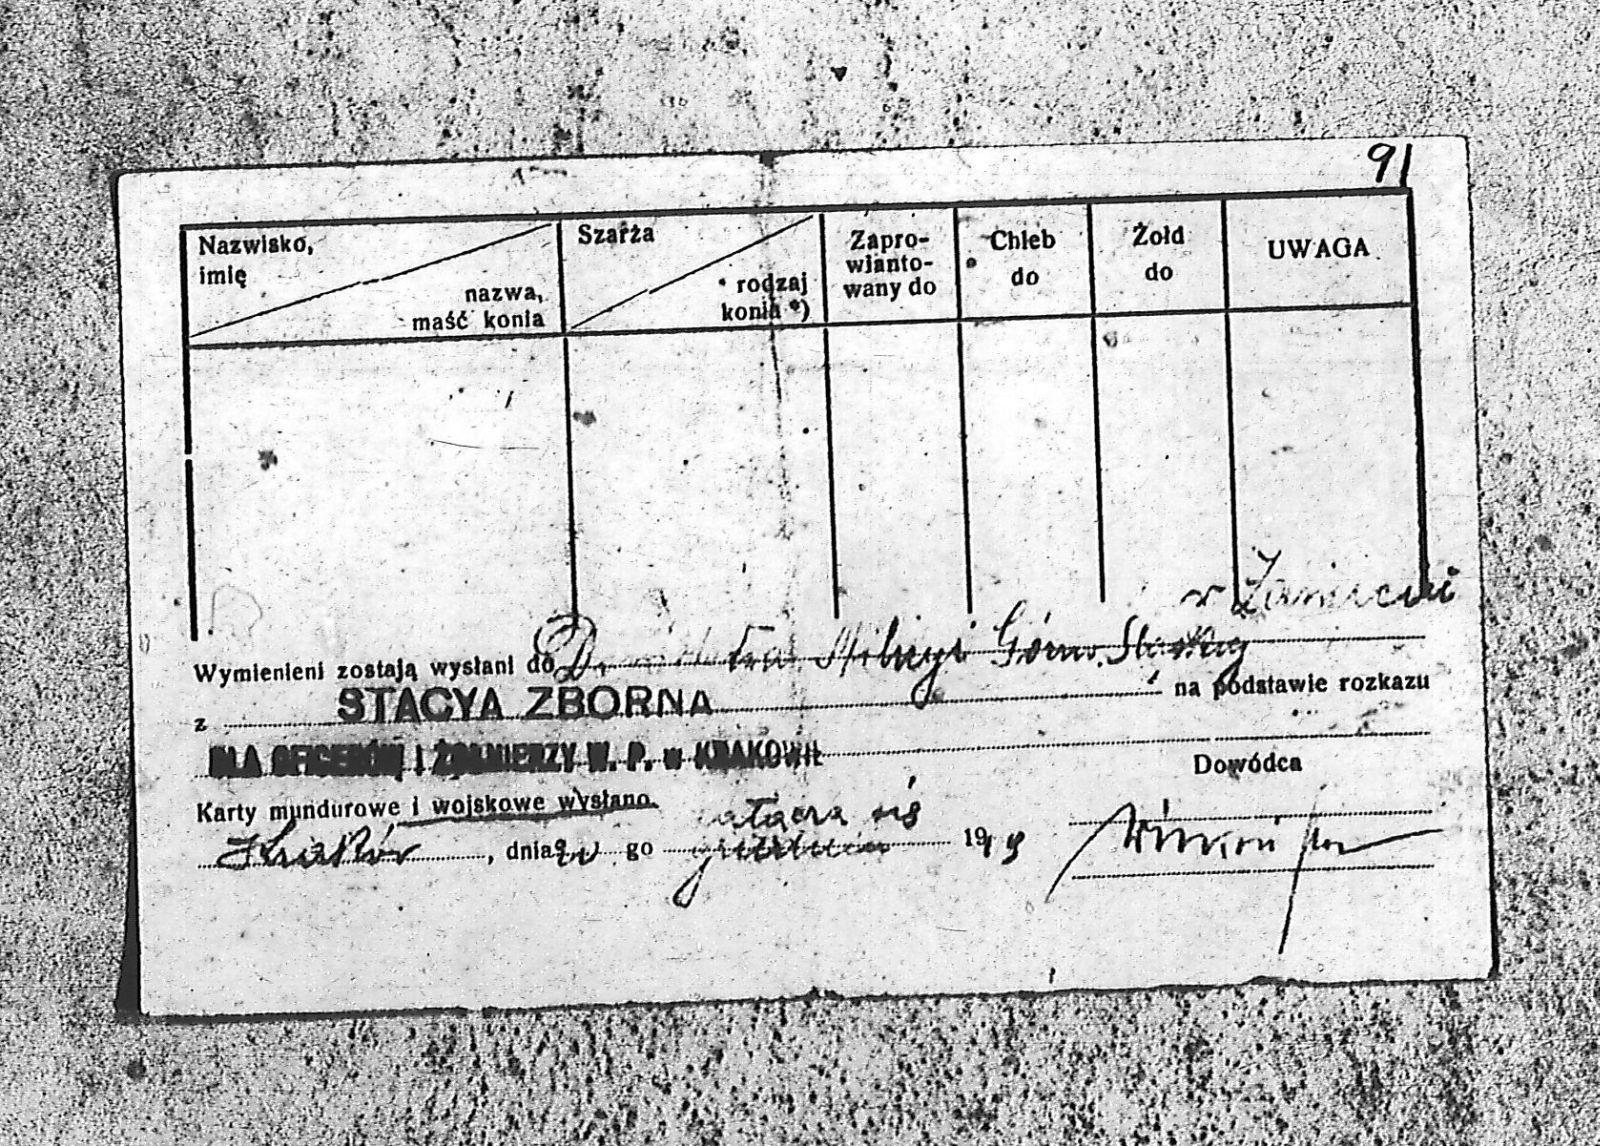 91
Nazwisko,
imię
nazwa,
maść konia
Szarża
rodzaj
konia *)
Zapro-
wianto-
wany do
Chleb
do
Żołd
do
UWAGA
Wymienieni zostają wysłani do D. Milicyi Górno Śląskiej
z STACYA ZBORNA na podstawie rozkazu
DLA OFICERÓW I ŻOŁNIERZY W. P. w KRAKOWIE
Dowódca
Karty mundurowe i wojskowe wysłano. załącza się
Kraków, dnia 20 go grudnia 1919